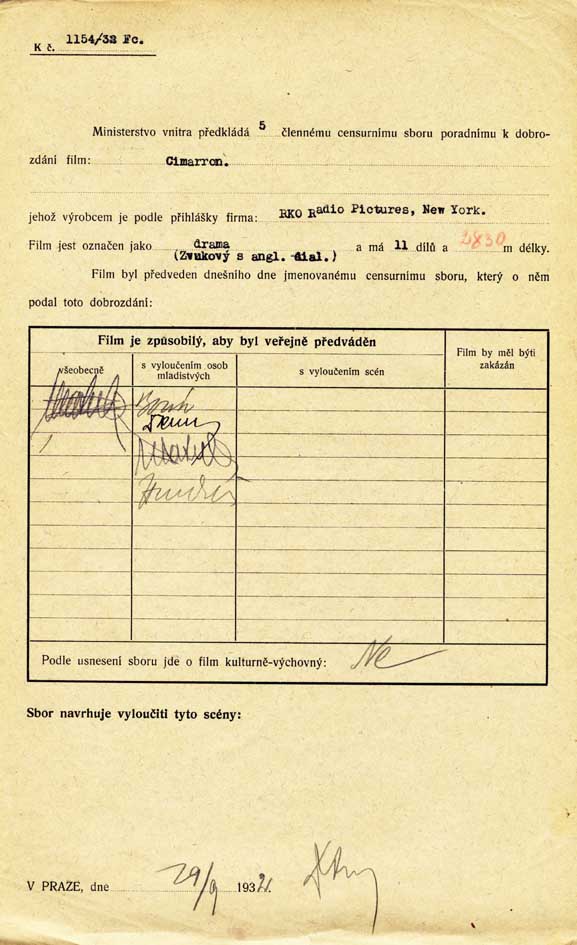 K č. 1154/32 Fc.
Ministerstvo vnitra předkládá 5 člennému censurnímu sboru poradnímu k dobro-
zdání film: Cimarron.
jehož výrobcem je podle přihlášky firma: RKO Radio Pictures, New York.
Film jest označen jako drama a má 11 dílů a 2830 m délky.
(Zvukový s angl. dial.)
Film byl předveden dnešního dne jmenovanému censurnímu sboru, který o něm
podal toto dobrozdání:
Film je způsobilý, aby byl veřejně předváděn
Film by měl býti
zakázán
všeobecně
s vyloučením osob
mladistvých
s vyloučením scén
Podle usnesení sboru jde o film kulturně-výchovný: Ne
Sbor navrhuje vyloučiti tyto scény:
V PRAZE, dne 29/9 1932.